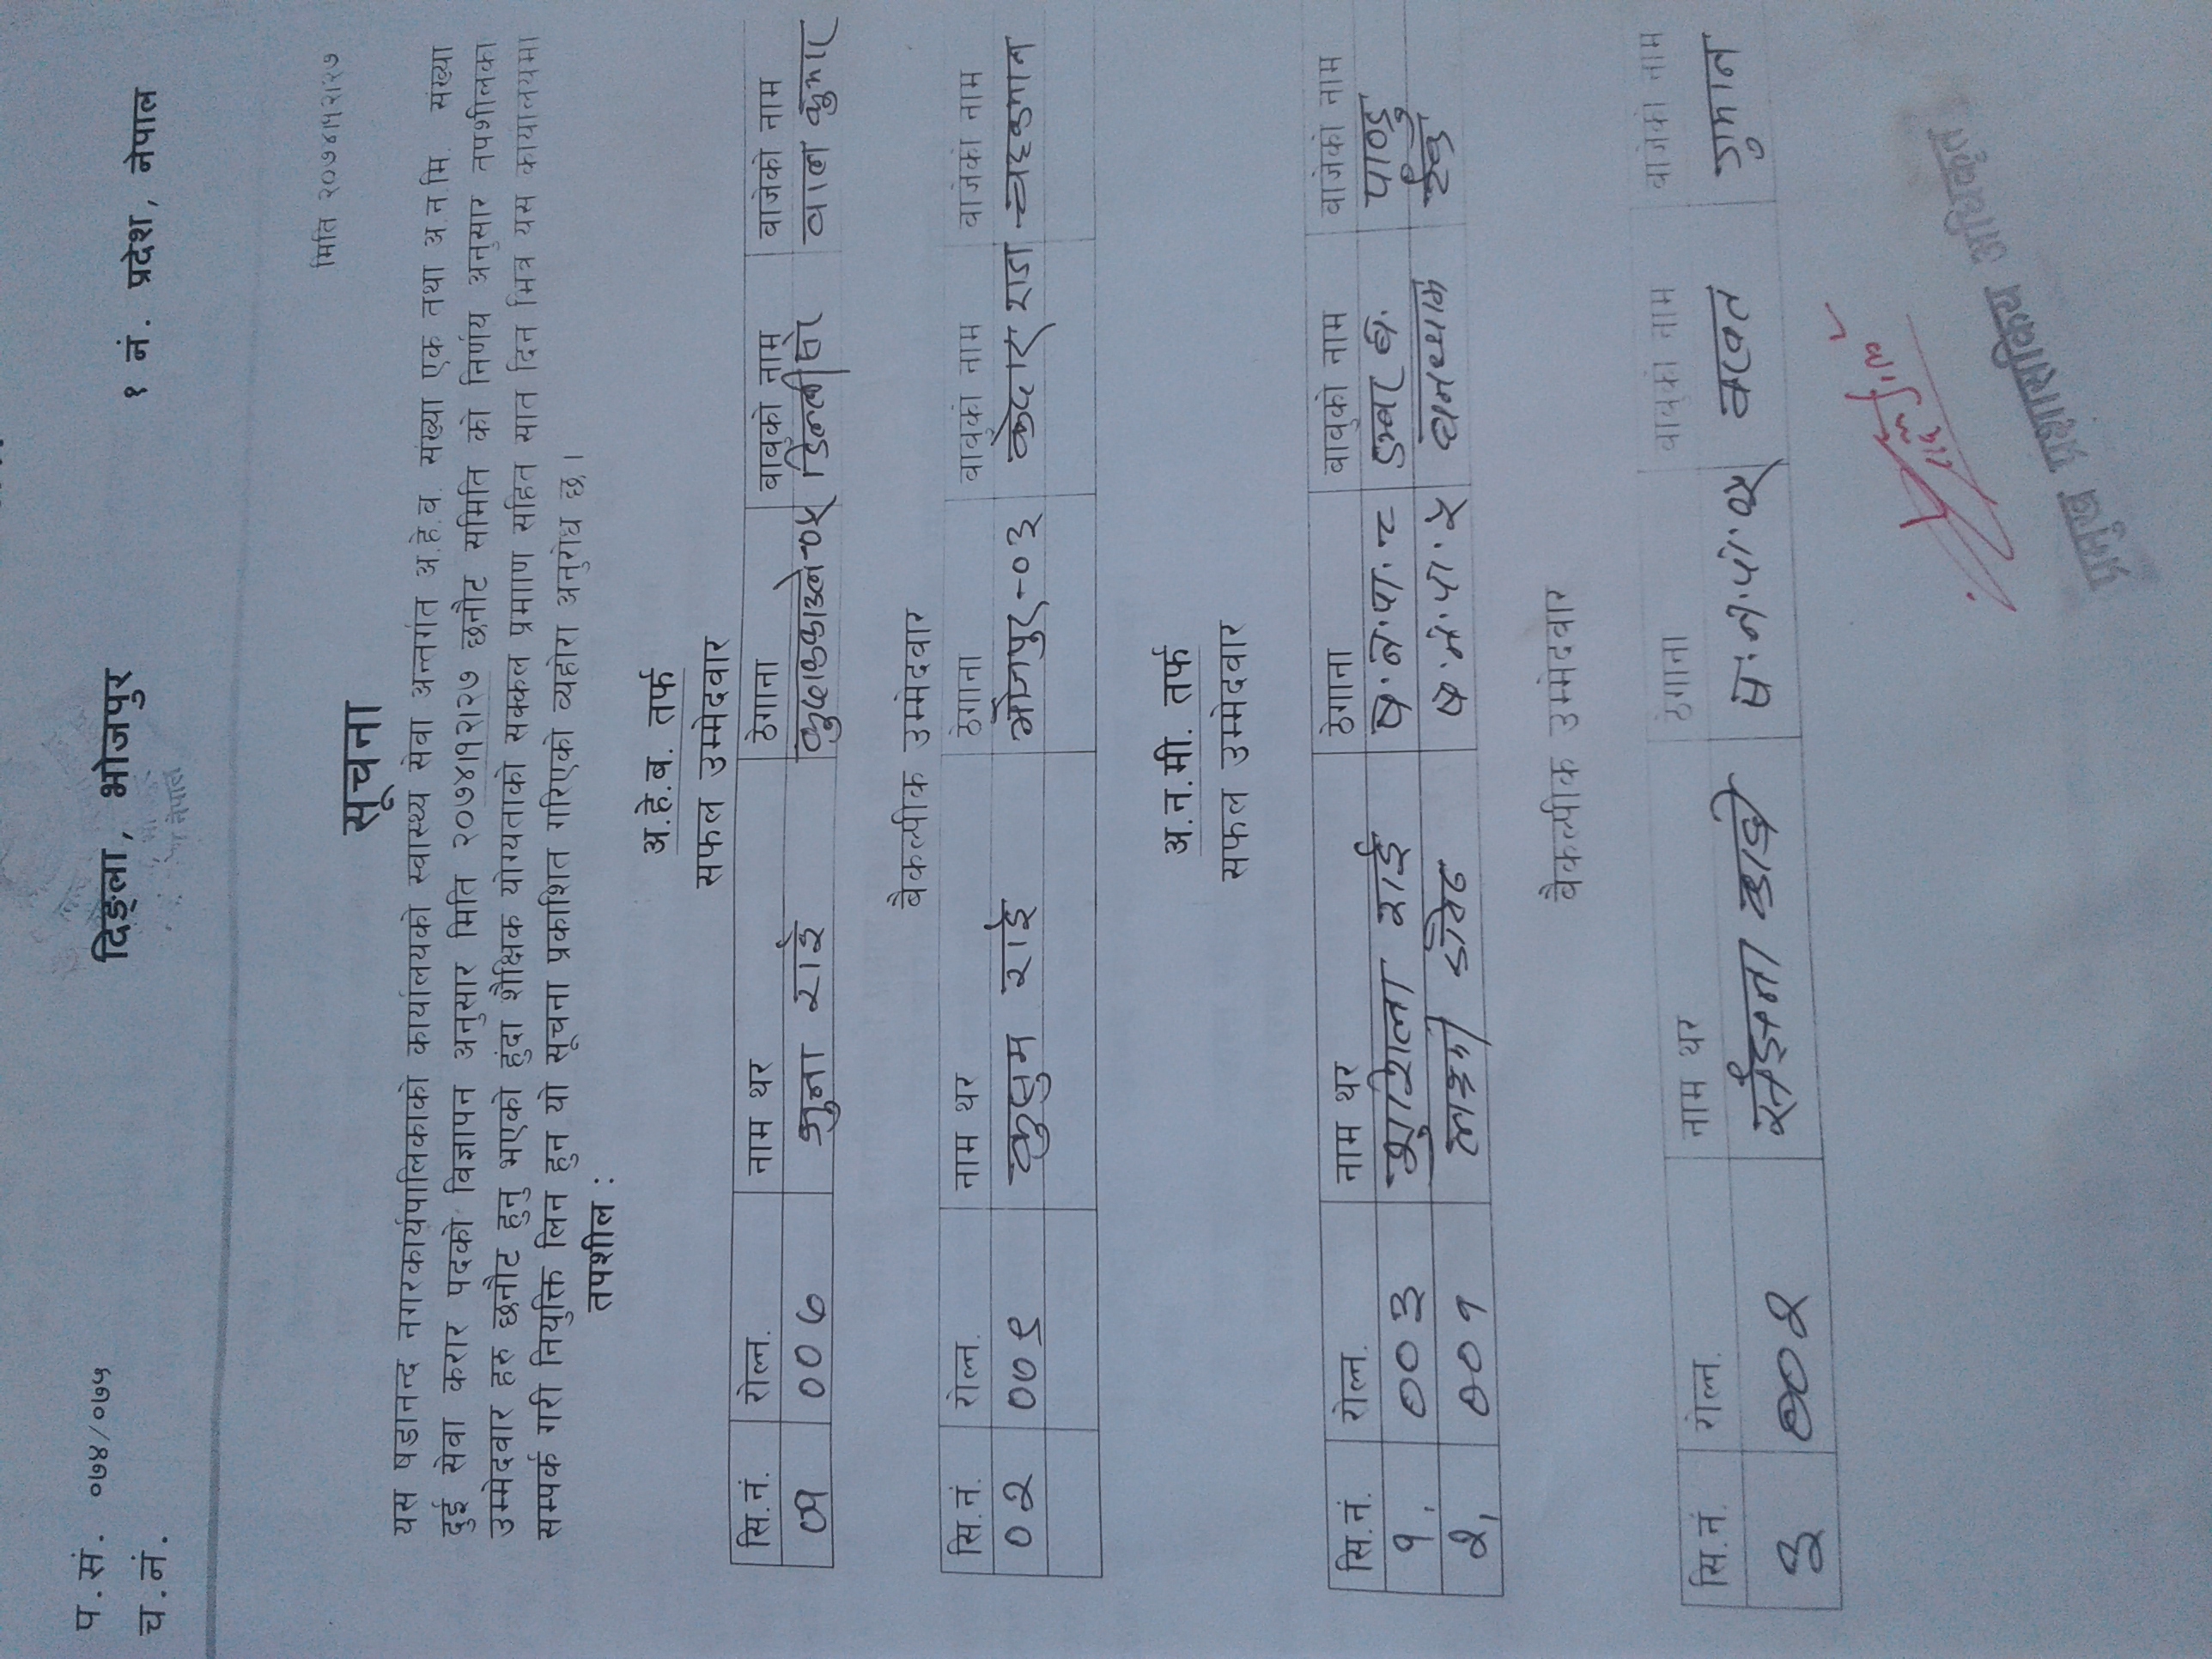 दिङ्ला, भोजपुर
१ नं. प्रदेश, नेपाल
प.सं. ०७४/०७५
च.नं.
मिति २०७४।१२।२७
सूचना
यस षडानन्द नगरकार्यपालिकाको कार्यालयको स्वास्थ्य सेवा अन्तर्गत अ.हे.व. संख्या एक तथा अ.न.मि. संख्या
दुई सेवा करार पदको विज्ञापन अनुसार मिति २०७४।१२।२७ छनौट समिति को निर्णय अनुसार तपशीलका
उम्मेदवार हरु छनौट हुनु भएको हुंदा शैक्षिक योग्यताको सक्कल प्रमाण सहित सात दिन भित्र यस कार्यालयमा
सम्पर्क गरी नियुक्ति लिन हुन यो सूचना प्रकाशित गरिएको व्यहोरा अनुरोध छ।
तपशील :
अ.हे.ब. तर्फ
सफल उम्मेदवार
सि.नं. रोल्न. नाम थर ठेगाना बाबुको नाम बाजेको नाम
०१ ००७ राई कुमार
बैकल्पीक उम्मेदवार
सि.नं. रोल्न. नाम थर ठेगाना बाबुको नाम बाजेको नाम
०२ ००९ कुसुम राई भोजपुर-०३ राज
अ.न.मी. तर्फ
सफल उम्मेदवार
सि.नं. रोल्न. नाम थर ठेगाना बाबुको नाम बाजेको नाम
१. ००३ राई ष.न.पा.
२. ००१ ष.न.पा.
बैकल्पीक उम्मेदवार
सि.नं रोल्न. नाम थर ठेगाना बाबुको नाम बाजेको नाम
३ ००२ ष.न.पा.
प्रमुख प्रशासकिय अधिकृत